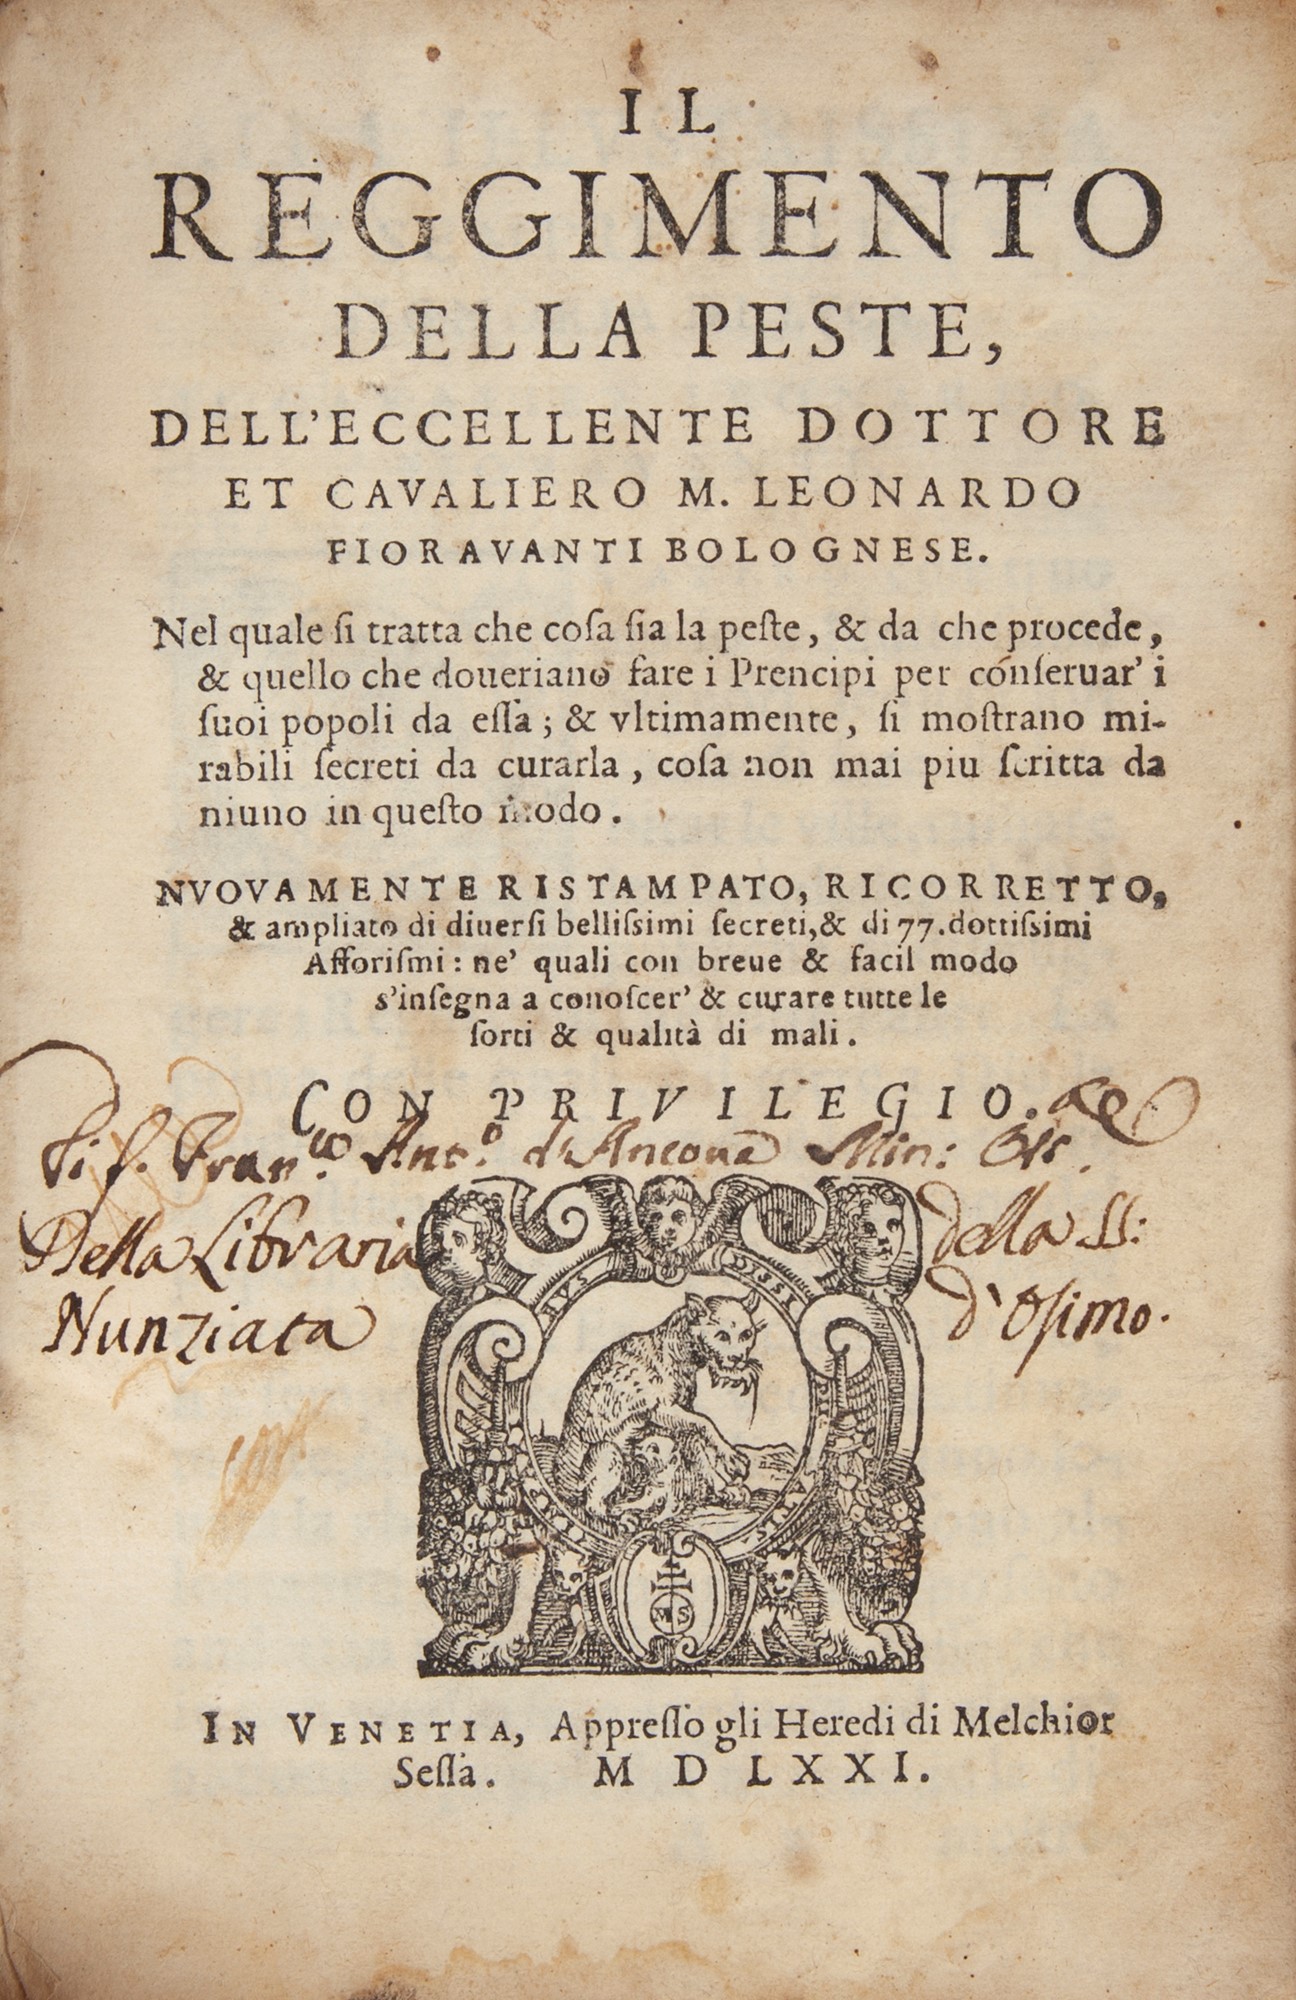 IL
REGGIMENTO
DELLA PESTE,
DELL'ECCELLENTE DOTTORE
ET CAVALIERO M. LEONARDO
FIORAVANTI BOLOGNESE.
Nel quale ſi tratta che coſa ſia la peſte, & da che procede,
& quello che doueriano fare i Prencipi per conſeruar' i
ſuoi popoli da eſſa; & vltimamente, ſi moſtrano mi-
rabili ſecreti da curarla, coſa non mai piu ſcritta da
niuno in queſto modo.
NVOVAMENTE RISTAMPATO, RICORRETTO,
& ampliato di diuerſi belliſsimi ſecreti, & di 77. dottiſsimi
Afforiſmi: ne' quali con breue & facil modo
s'inſegna a conoſcer' & curare tutte le
ſorti & qualità di mali.
CON PRIVILEGIO.
Di f. Fran.co Ant.o d'Ancona Min: Oſs.
Della Libraria della SS:
Nunziata d'Osimo.
DISSI
MS
IN VENETIA, Appreſſo gli Heredi di Melchior
Seſſa. MDLXXI.